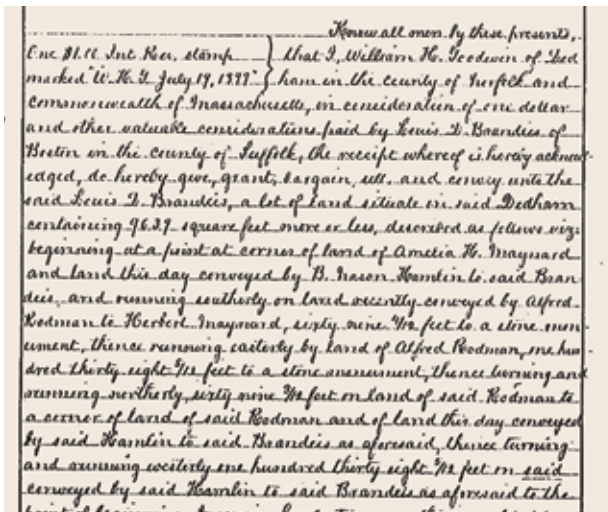 Know all men by these presents,
One $1.00 Int. Rev. stamp } that I, William H. Goodwin of Ded
marked "W. H. G. July 19, 1899" } ham in the county of Norfolk and
commonwealth of Massachusetts, in consideration of one dollar
and other valuable considerations paid by Louis D. Brandeis of
Boston in the county of Suffolk, the receipt whereof is hereby acknowl-
edged, do hereby give, grant, bargain, sell and convey unto the
said Louis D. Brandeis, a lot of land situate in said Dedham
containing 9639 square feet more or less, described as follows viz:
beginning at a point at corner of land of Amelia H. Maynard
and land this day conveyed by B. Nason Hamlin to said Bran
deis, and running southerly on land recently conveyed by Alfred
Rodman to Herbert Maynard, sixty nine feet to a stone mon-
ument, thence running easterly by land of Alfred Rodman, one hun-
dred thirty eight feet to a stone monument, thence turning and
running northerly, sixty nine feet on land of said Rodman to
a corner of land of said Rodman and of land this day conveyed
by said Hamlin to said Brandeis as aforesaid, thence turning
and running westerly one hundred thirty eight feet on said
conveyed by said Hamlin to said Brandeis as aforesaid to the
point of beginning